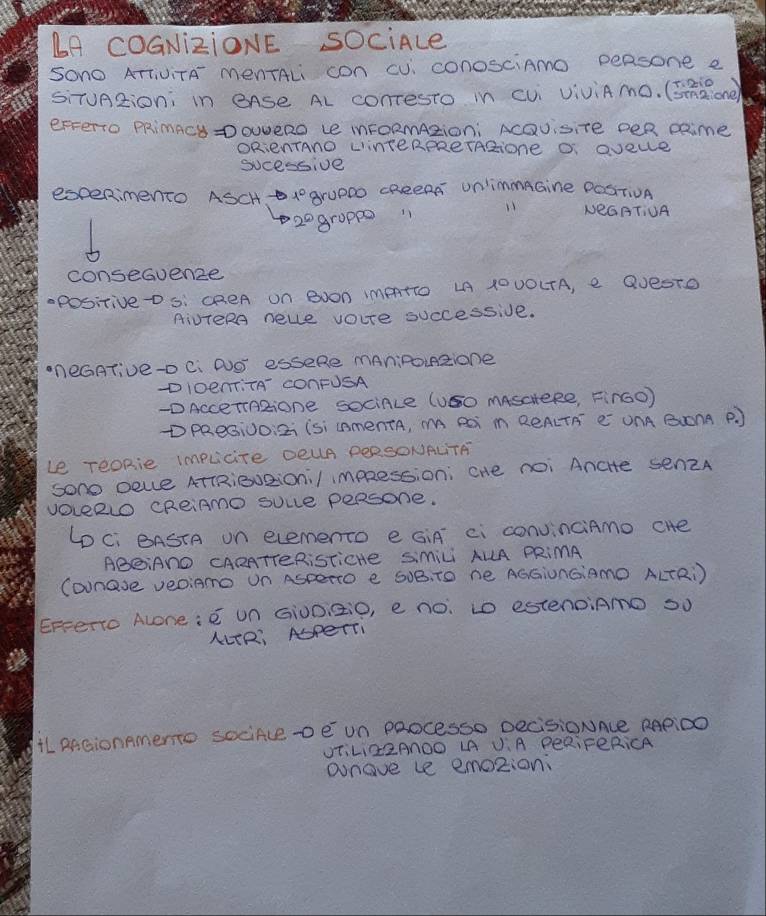 LA COGNIZIONE SOCIALE
SONO ATTIVITÀ MENTALI CON CUI CONOSCIAMO PERSONE E
SITUAZIONI IN BASE AL CONTESTO IN CUI VIVIAMO. (TIZIO STAZIONE)
EFFETTO PRIMACY => OVVERO LE INFORMAZIONI ACQUISITE PER PRIME
ORIENTANO L'INTERPRETAZIONE DI QUELLE
SUCESSIVE
ESPERIMENTO ASCH → 1º GRUPPO CREERÀ UN'IMMAGINE POSTIVA
↳ 2º GRUPPO " " NEGATIVA
↓
CONSEGUENZE
• POSITIVE → SI CREA UN BUON IMPATTO LA 1º VOLTA, E QUESTO
AIUTERA NELLE VOLTE SUCCESSIVE.
• NEGATIVE → CI PUÒ ESSERE MANIPOLAZIONE
→ IDENTITÀ CONFUSA
→ ACCETTAZIONE SOCIALE (USO MASCHERE, FINGO)
→ PREGIUDIZI (SI LAMENTA, MA POI IN REALTÀ È UNA BUONA P.)
LE TEORIE IMPLICITE DELLA PERSONALITÀ
SONO DELLE ATTRIBUZIONI/IMPRESSIONI CHE NOI ANCHE SENZA
VOLERLO CREIAMO SULLE PERSONE.
↳ CI BASTA UN ELEMENTO E GIÀ CI CONVINCIAMO CHE
ABBIANO CARATTERISTICHE SIMILI ALLA PRIMA
(DUNQUE VEDIAMO UN ASPETTO E SUBITO NE AGGIUNGIAMO ALTRI)
EFFETTO ALONE: É UN GIUDIZIO, E NOI LO ESTENDIAMO SU
ALTRI ASPETTI
IL RAGIONAMENTO SOCIALE → È UN PROCESSO DECISIONALE RAPIDO
UTILIZZANDO LA VIA PERIFERICA
DUNQUE LE EMOZIONI